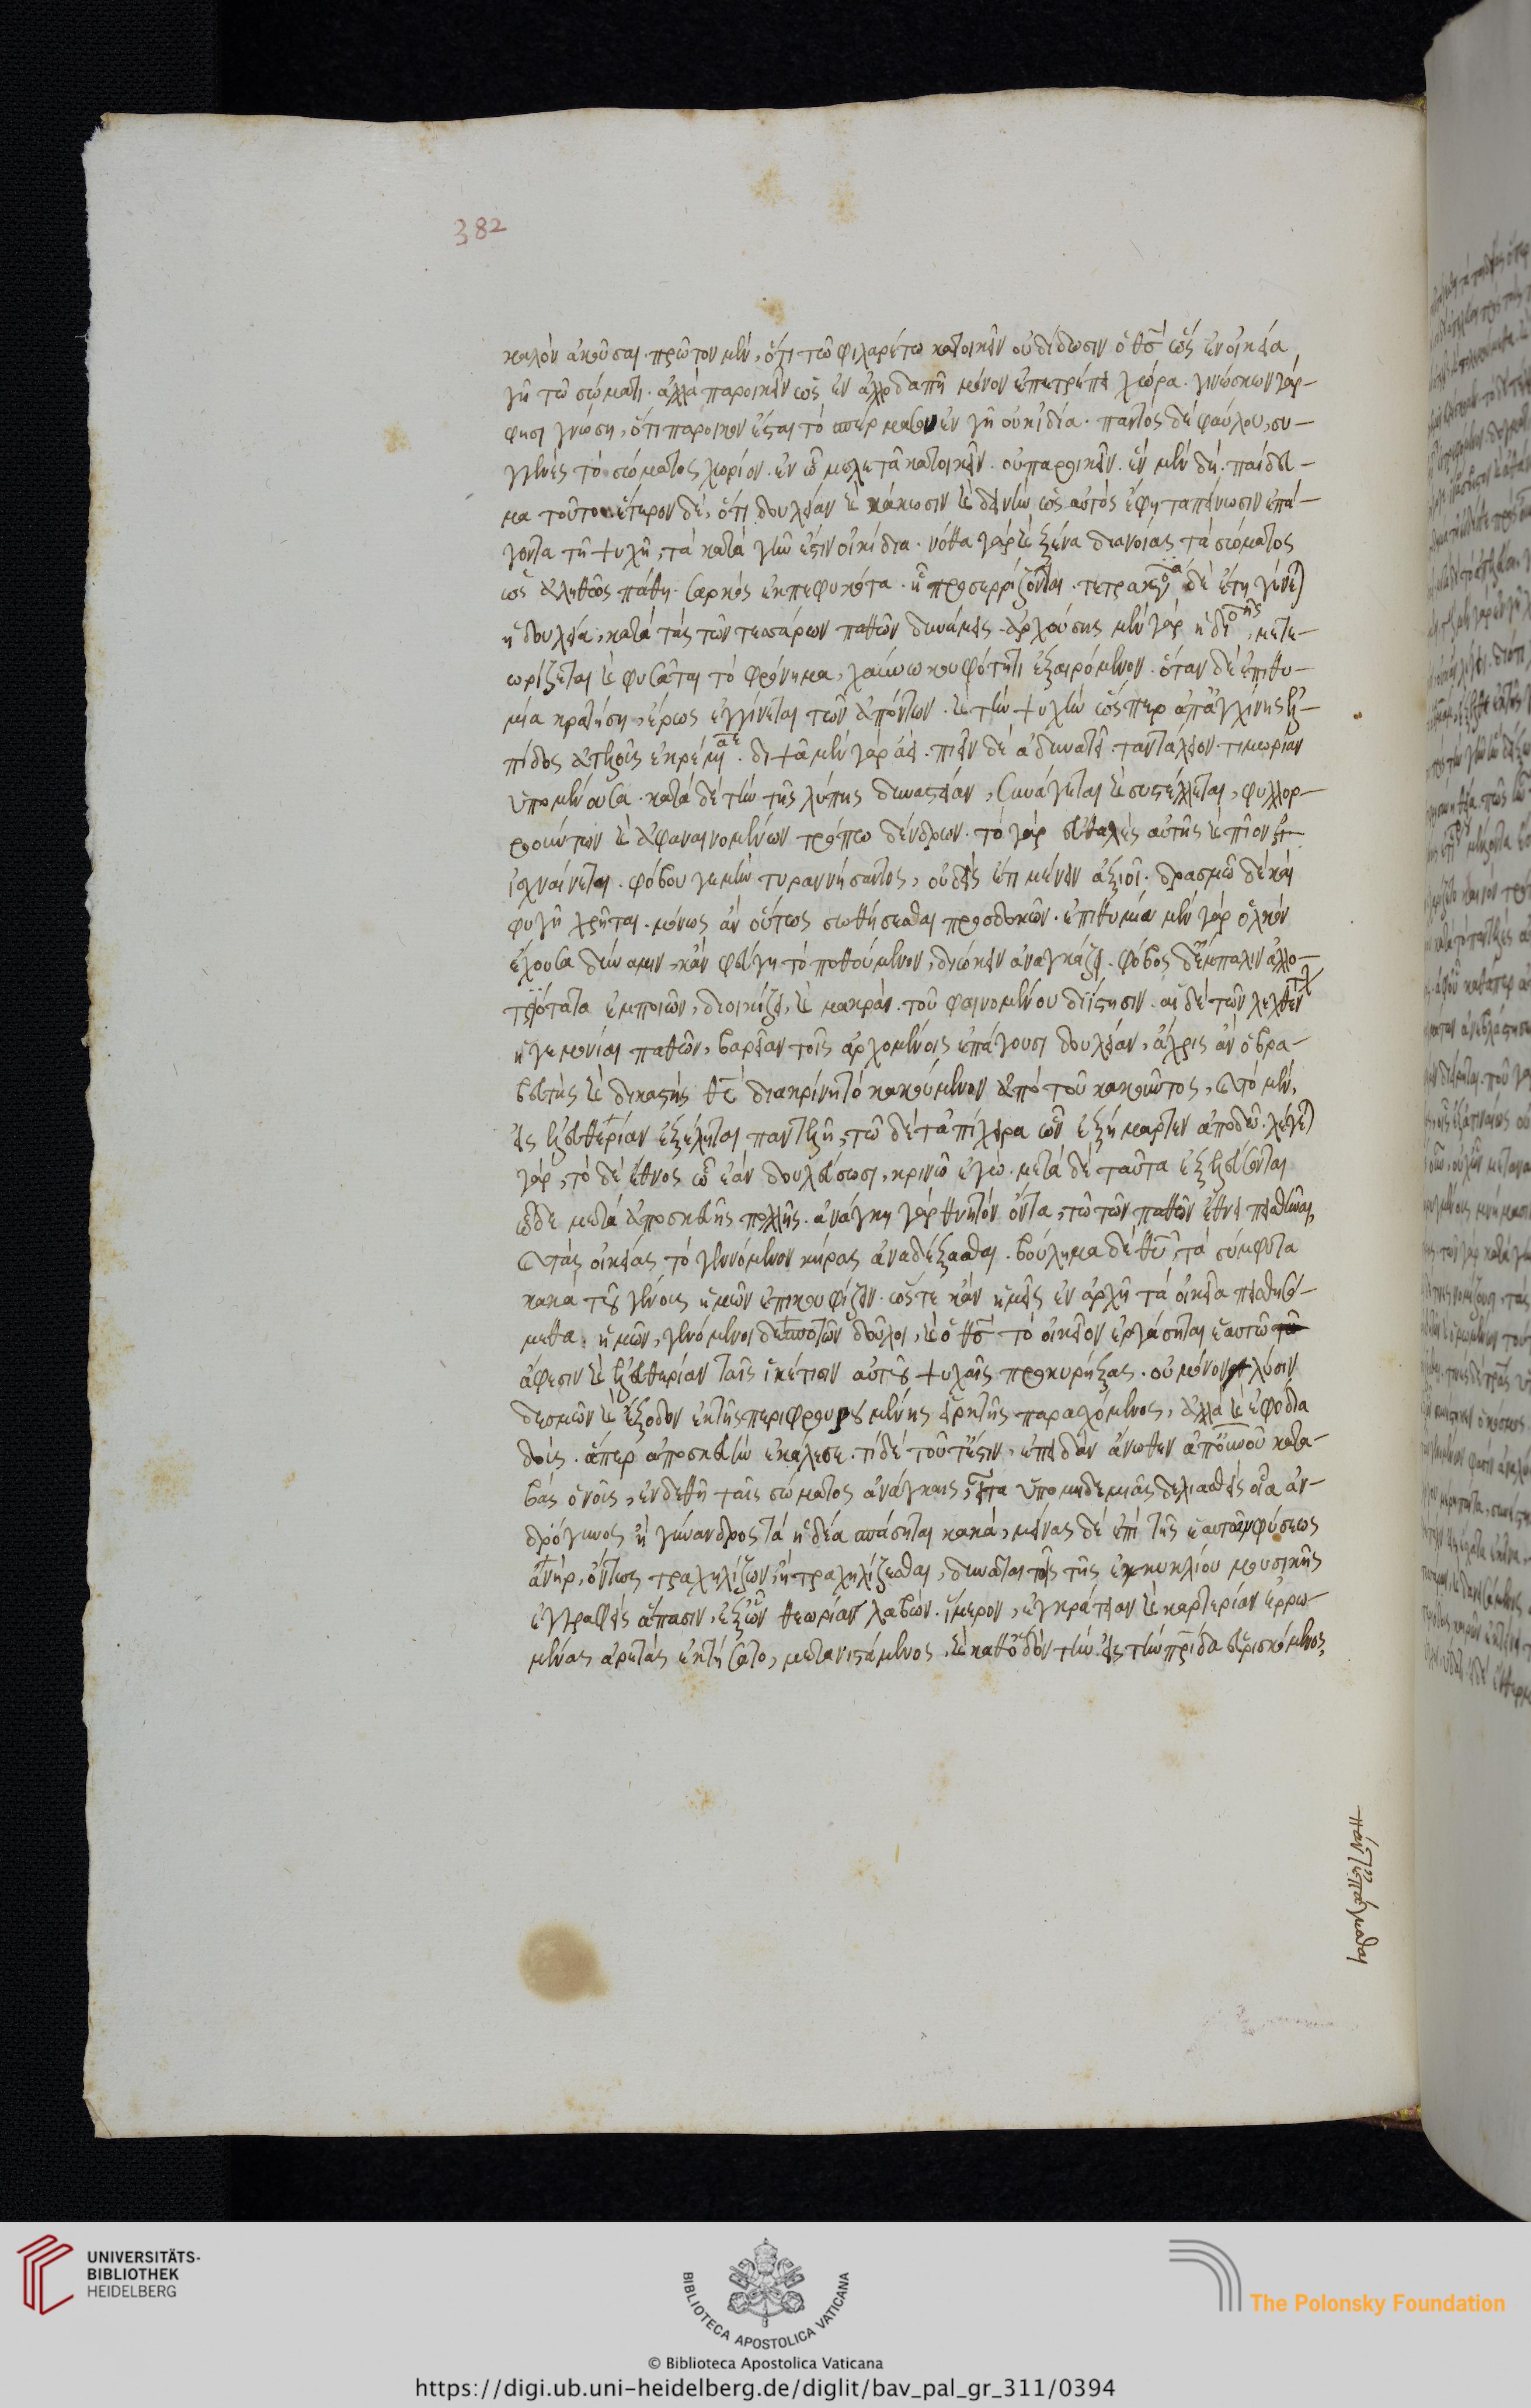 382
καλὸν ἀκοῦσαι. πρῶτον μὲν, ὅτι τῶ φιλαρέτω κατοικεῖν οὐ δίδωσιν ὁ θς̄ ὡς ἐν οἰκεία
γῆ τῶ σώματι. ἀλλὰ παροικεῖν ὡς ἐν ἀλλοδαπῆ μόνον ἐπιτρέπει χώρα. γινώσκων γάρ–
φησι γνώση, ὅτι πάροικον ἔσται τὸ σπέρμα σου ἐν γῆ οὐκ ἰδία. παντὸς δὲ φαύλου, συ–
γγενὲς τὸ σώματος χωρίον. ἐν ὧ μελετᾶ κατοικεῖν. οὐ παροικεῖν. ἓν μὲν δὴ. παίδευ–
μα τοῦτο. ἕτερον δὲ, ὅτι δουλείαν καὶ κάκωσιν καὶ δεινὴν ὡς αὐτὸς ἔφη ταπείνωσιν ἐπά–
γοντα τῆ ψυχῆ, τὰ κατὰ γῆν ἐστιν οἰκίδια. νόθα γὰρ καὶ ξένα διανοίας τὰ σώματος
ὡς ἀληθῶς πάθη. σαρκὸς ἐκπεφυκότα. ἧ προσερρίζονται. τετρακόσια δὲ ἔτη γίνεται
ἡ δουλεία, κατὰ τὰς τῶν τεσσάρων παθῶν δυνάμεις. ἀρχούσης μὲν γὰρ ἡδονῆς, μετε–
ωρίζεται καὶ φυσᾶται τὸ φρόνημα, χαύνω κουφότητι ἐξαιρόμενον. ὅταν δὲ ἐπιθυ–
μία κρατήση, ἔρως ἐγγίνεται τῶν ἀπόντων. καὶ τὴν ψυχὴν ὥσπερ ἀπ' ἀγχόνης ἐλ–
πίδος ἀτελοῦς ἐκρέμασε. διψᾶ μὲν γὰρ ἀεὶ. πιεῖν δὲ ἀδυνατεῖ. ταντάλειον τιμωρίαν
ὑπομένουσα. κατὰ δὲ τὴν τῆς λύπης δυναστείαν, συνάγεται καὶ συστέλλεται, φυλλορ–
ροούντων καὶ ἀφαναινομένων τρόπω δένδρων. τὸ γὰρ εὐθαλὲς αὐτῆς καὶ πῖον
ἰσχναίνεται. φόβου γε μὴν τυραννήσαντος, οὐδεὶς ἔτι μένειν ἀξιοῖ. δρασμῶ δὲ καὶ
φυγῆ χρῆται. μόνως ἂν οὕτως σωθήσεσθαι προσδοκῶν. ἐπιθυμία μὲν γὰρ ὁλκὸν
ἔχουσα δύναμιν, κἂν φεύγη τὸ ποθούμενον, διώκειν ἀναγκάζει. φόβος δ' ἔμπαλιν ἀλλο–
τριότητα ἐμποιῶν, διοικίζει, καὶ μακρὰν. τοῦ φαινομένου διΐστησιν. αἱ δὲ τῶν λεχθέντων
ἡγεμονίαι παθῶν, βαρεῖαν τοῖς ἀρχομένοις ἐπάγουσι δουλείαν, ἄχρις ἂν ὁ βρα–
βευτὴς καὶ δικαστὴς θς̄ διακρίνη τὸ κακούμενον ἀπὸ τοῦ κακοῦντος, καὶ τὸ μὲν,
εἰς ἐλευθερίαν ἐξέληται παντελῆ, τῶ δὲ τἀπίχειρα ὧν ἐξήμαρτεν ἀποδῶ. λέγεται
γὰρ, τὸ δὲ ἔθνος ὧ ἐὰν δουλεύσωσι, κρινῶ ἐγὼ. μετὰ δὲ ταῦτα ἐξελεύσονται
ὧδε μετὰ ἀποσκευῆς πολλῆς. ἀνάγκη γὰρ θνητὸν ὄντα, τῶ τῶν παθῶν ἔθνει πιεσθῆναι,
καὶ τὰς οἰκείας τὸ γενόμενον κῆρας ἀναδέξασθαι. βούλημα δὲ θῡ, τὰ σύμφυτα
κακὰ τοῦ γένους ἡμῶν ἐπικουφίζειν. ὥστε κἂν ἡμεῖς ἐν ἀρχῆ τὰ οἰκεῖα πεισθησό–
μεθα. ἡμῶν, γενόμενοι δεσποτῶν δοῦλοι, καὶ ὁ θς̄ τὸ οἰκεῖον ἐργάσηται ἑαυτῶ
ἄφεσιν καὶ ἐλευθερίαν ταῖς ἱκέτισιν αὐτοῦ ψυχαῖς προκηρύξας. οὐ μόνον λύσιν
δεσμῶν καὶ ἔξοδον ἐκ τῆς περιφρουρουμένης εἱρκτῆς παρασχόμενος, ἀλλὰ καὶ ἐφόδια
δοὺς. ἅπερ ἀποσκευὴν ἐκάλεσε. τί δὲ τοῦτ' ἔστιν, ἐπειδὰν ἄνωθεν ἀπ' οὐνοῦ κατα–
βὰς ὁ νοῦς, ἐνδεθῆ ταῖς σώματος ἀνάγκαις, εἶτα ὑπὸ μηδεμιᾶς δελεασθεὶς οἷα ἀν–
δρόγυνος ἢ γύνανδρος τὰ ἡδέα ἀσπάσηται κακὰ, μείνας δὲ ἐπὶ τῆς ἑαυτοῦ φύσεως
ἀνὴρ, ὄντως τραχηλίζων, ἢ τραχηλίζεσθαι, δυνᾶται τοῖς τῆς ἐγκυκλίου μουσικῆς
ἐντραφεὶς ἅπασιν, ἐξ ὧν θεωρίαν λαβὼν. ἵμερον, ἐγκράτειαν καὶ καρτερίαν ἐρρω–
μένας ἀρετὰς ἐκτήσατο, μετανιστάμενος, καὶ κάθοδον τὴν εἰς τὴν πρίδα εὑρισκόμενος,
πάντ' ἐπάγεσθαι
UNIVERSITÄTS-
BIBLIOTHEK
HEIDELBERG
BIBLIOTECA APOSTOLICA VATICANA
The Polonsky Foundation
© Biblioteca Apostolica Vaticana
https://digi.ub.uni-heidelberg.de/diglit/bav_pal_gr_311/0394